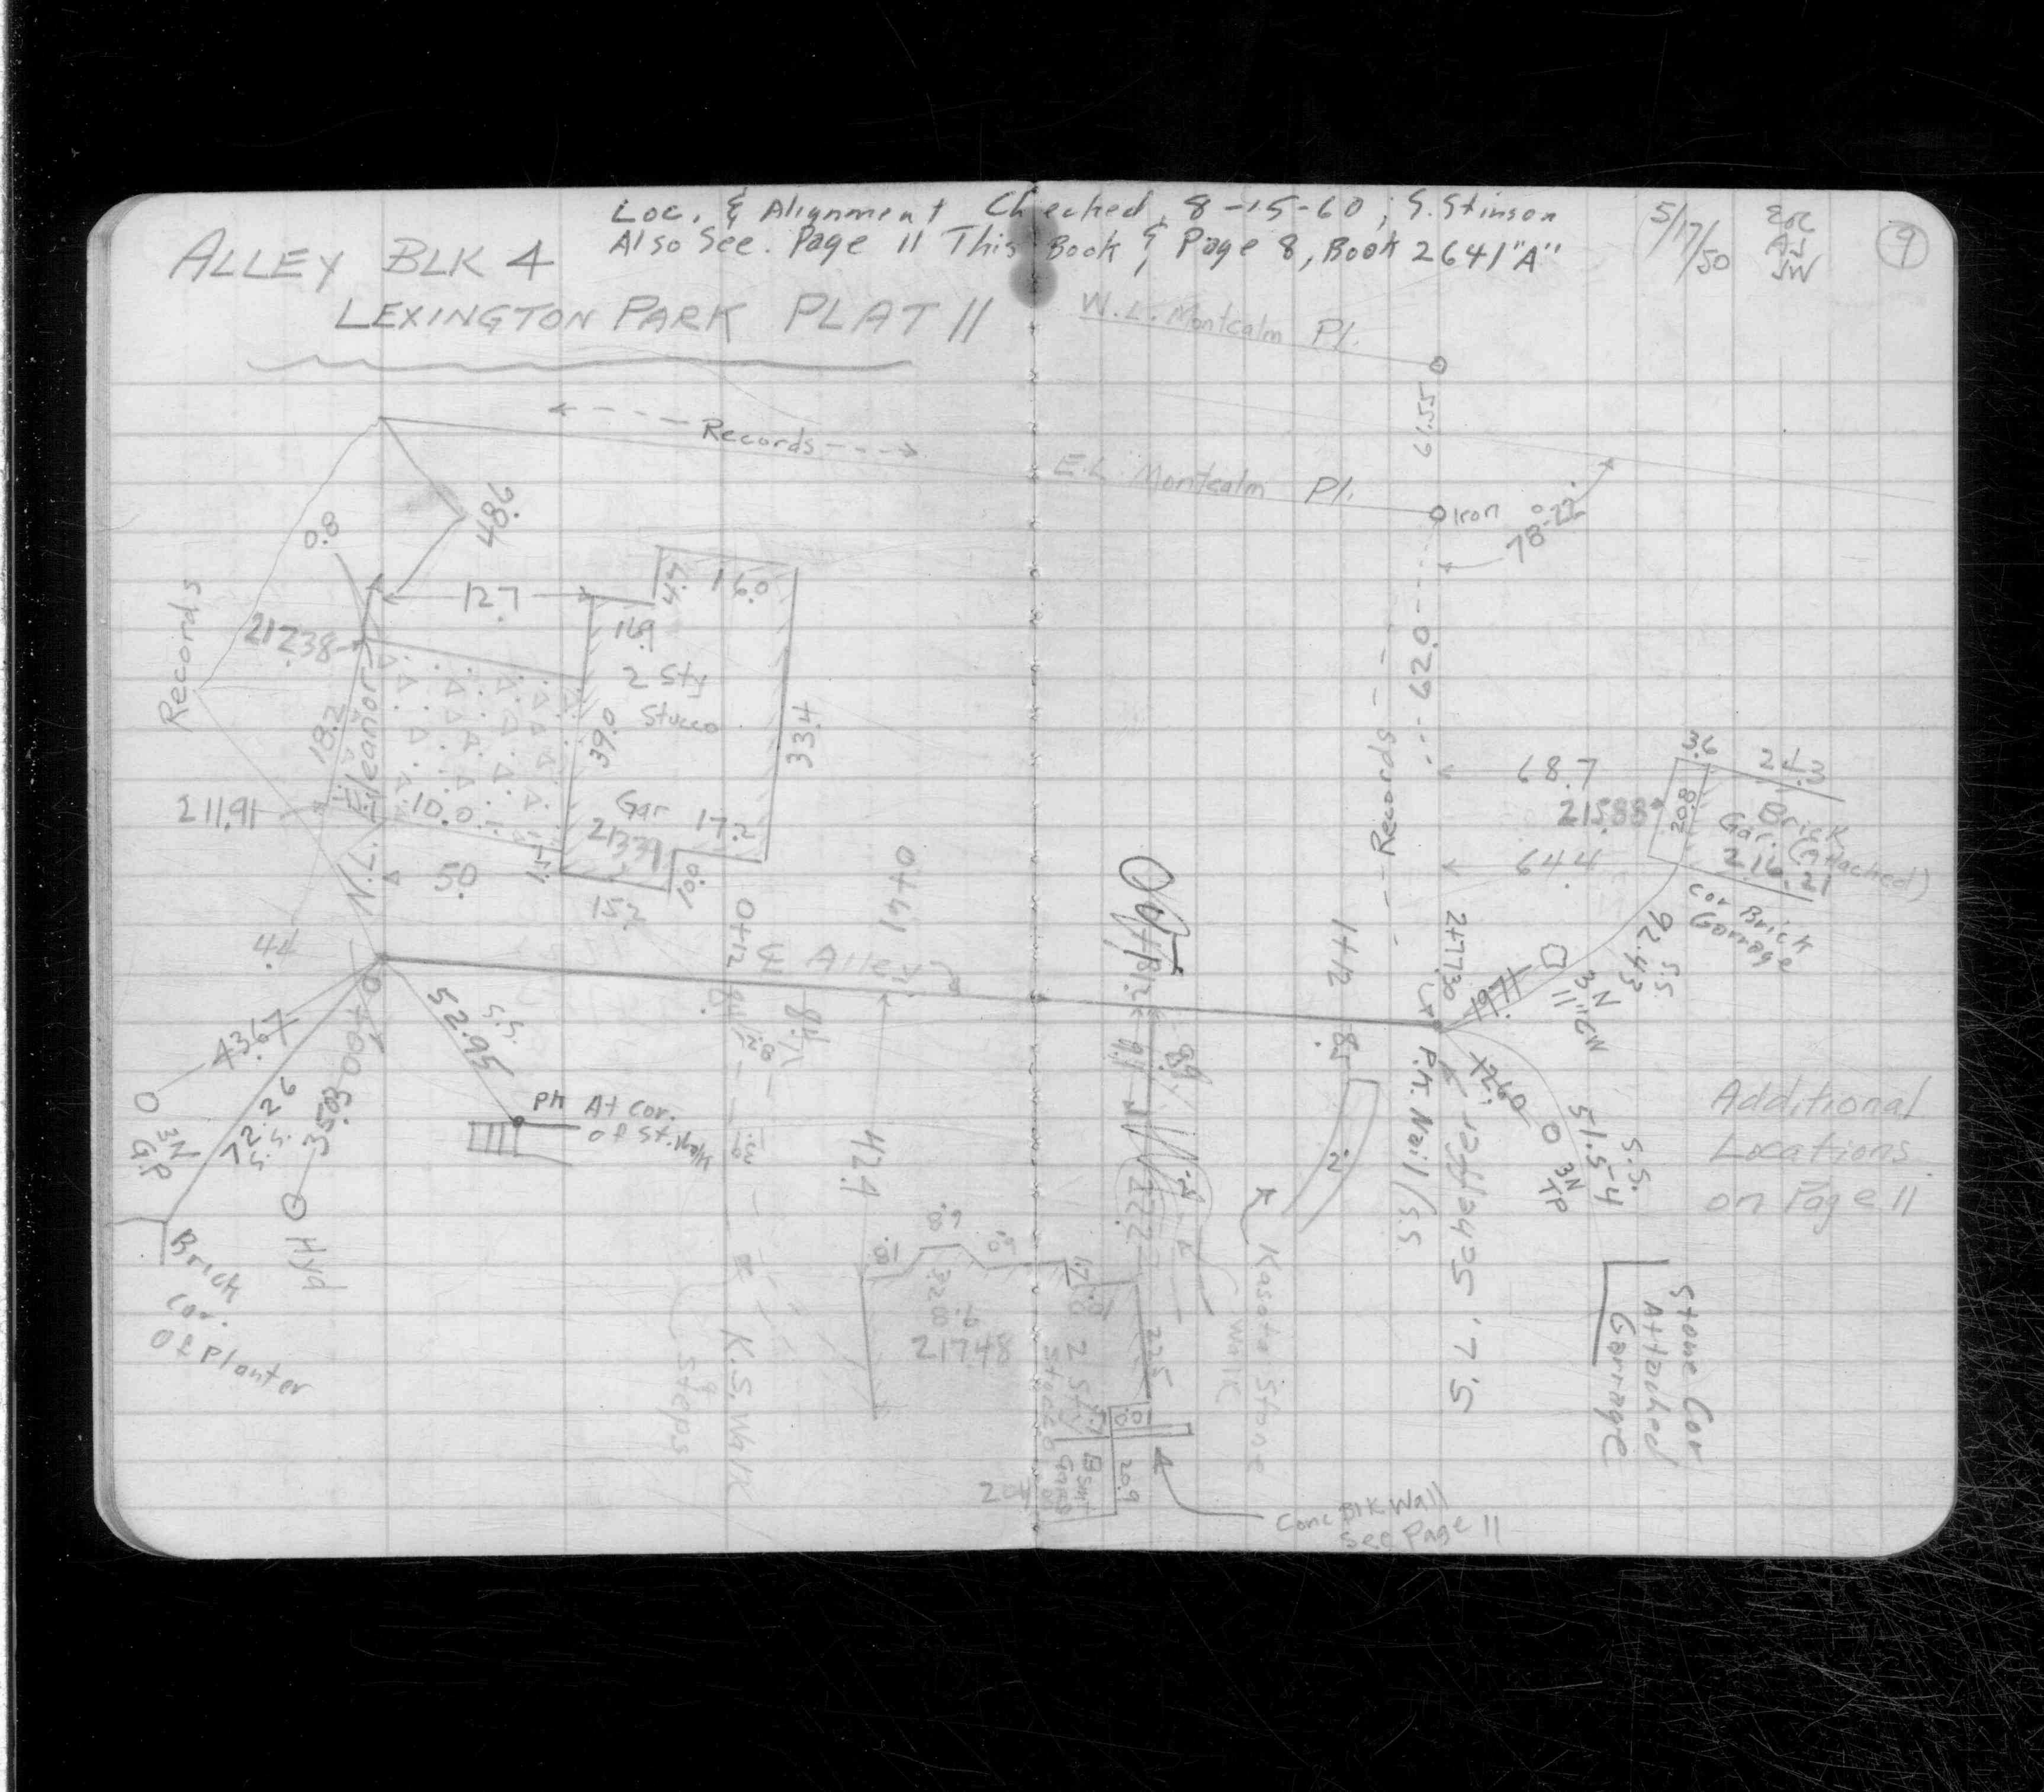 Loc. & Alignment Checked, 8-15-60; S. Stinson
Also See. Page 11 This Book & Page 8, Book 2641 "A"
5/17/50
AJ
JW
9
ALLEY BLK 4
LEXINGTON PARK PLAT 11
W.L. Montcalm Pl.
61.55
Records
E.L. Montcalm Pl.
Iron
78°-22'
0.8
48.6
12.7
4.7
16.0
16.9
Records
212.38
2 Sty
Stucco
39.0
33.4
18.2
N.L. Eleanor
211.91
10.0
Gar
213.31
17.2
1.5
50.
10.0
15.2
Records
62.0
68.7
3.6
24.3
215.88
20.8
Brick
Gar. (Attached)
216.21
64.4
Cor Brick
Garrage
92.43
S.S.
44.
0+12
Alley
0+61
1+12
2+77.30
19.71
N 11
0+00
43.67
3N
G.P
72.26
S.S.
35.03
Hyd
Brick
Cor.
Of Planter
52.95
S.S.
PK At Cor.
Of St. Walk
42.4
8.5
P.K. Nail / S.S
S. L. Scheffer
12.60
3N
TP
51.54
S.S.
Stone Cor
Attached
Garrage
Additional
Locations
on Page 11
Kasota Stone
Walk
217.48
2 Sty
22.5
10.0
20.9
K.S. Walk
Steps
Conc Blk Wall
See Page 11